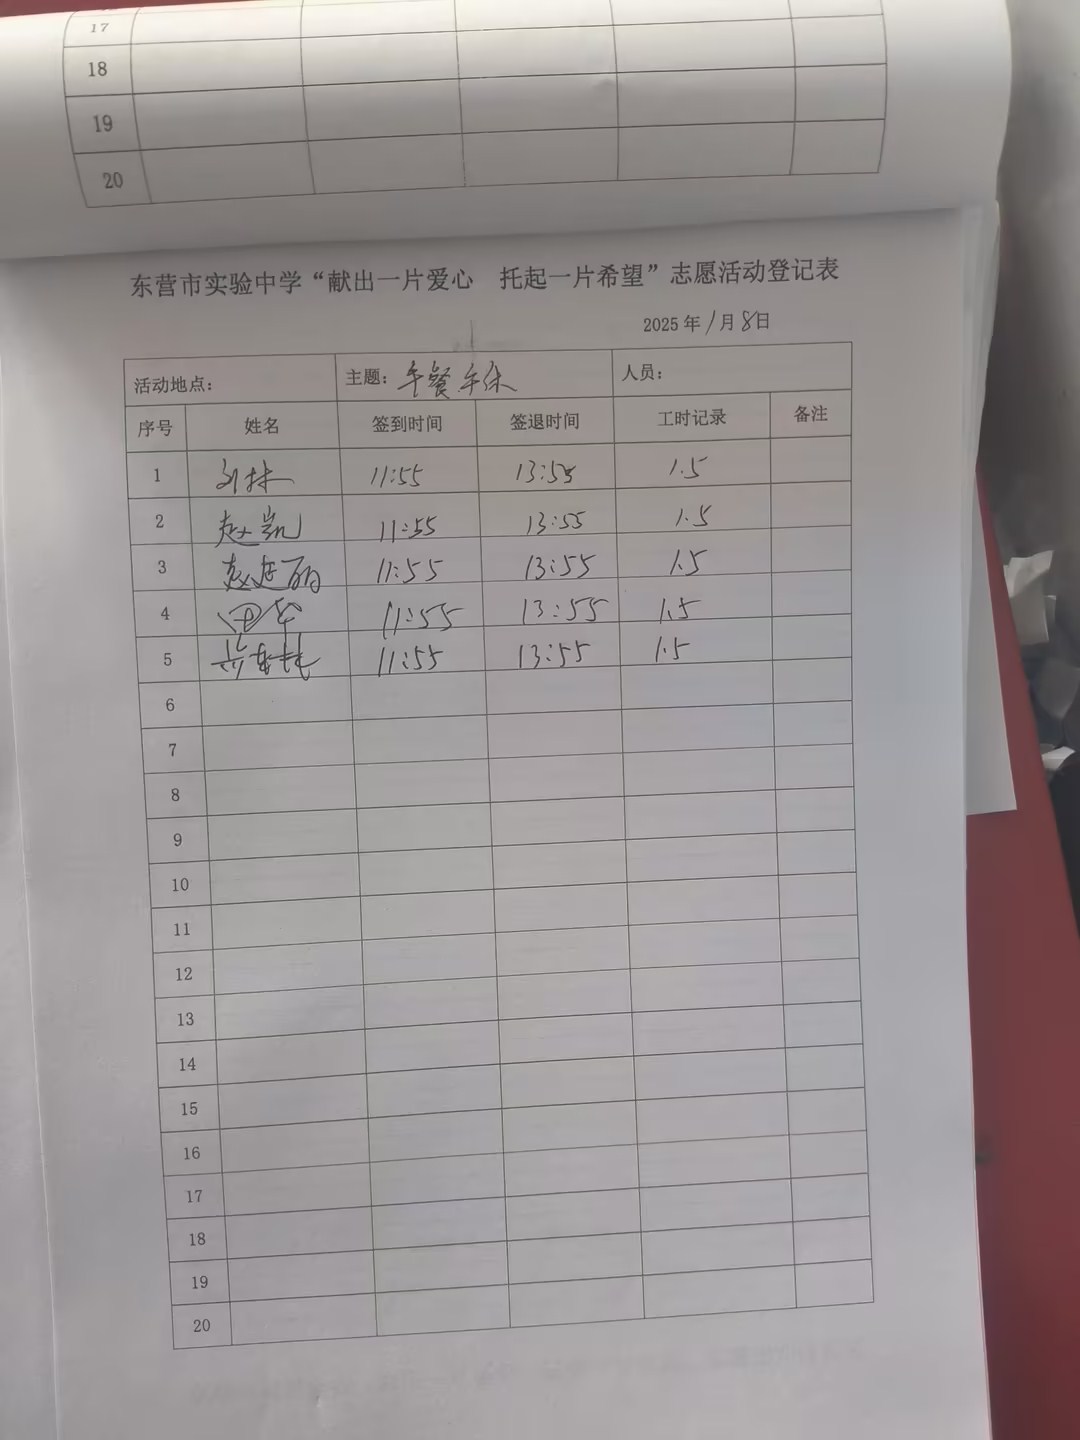 17
18
19
20
东营市实验中学“献出一片爱心 托起一片希望”志愿活动登记表
2025年1月8日
活动地点： 主题：午餐午休 人员：
序号 姓名 签到时间 签退时间 工时记录 备注
1 刘林 11:55 13:55 1.5
2 赵凯 11:55 13:55 1.5
3 赵廷丽 11:55 13:55 1.5
4 11:55 13:55 1.5
5 11:55 13:55 1.5
6
7
8
9
10
11
12
13
14
15
16
17
18
19
20